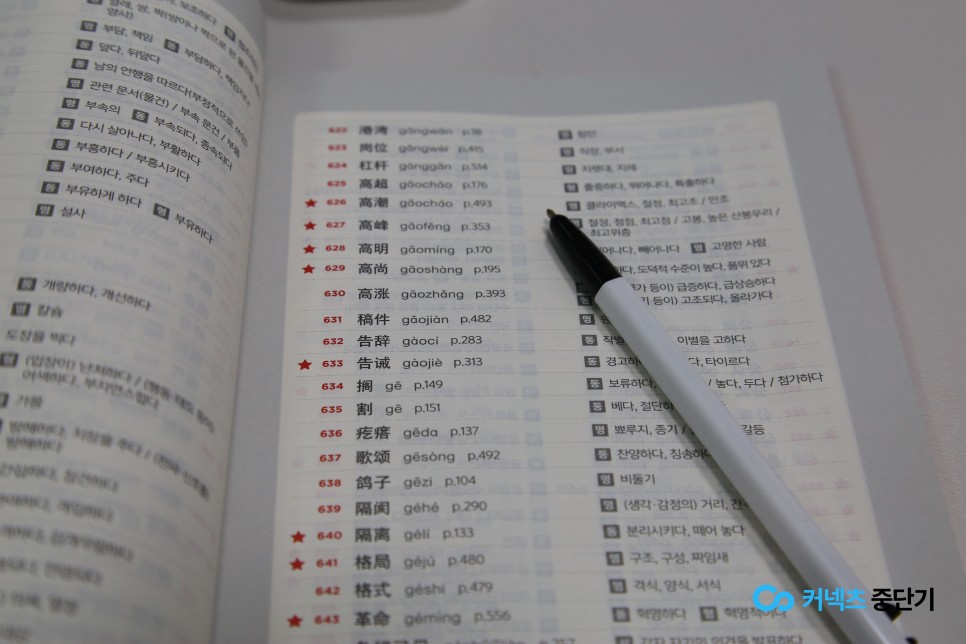 보조하다
양사)
명 부담, 책임 동 부담하다, 책임지다
동 덮다, 뒤덮다
동 남의 언행을 따르다(부정적으로
명 관련 문서(물건) / 부속 문건 /
형 부속의 동 부속되다, 종속되다
동 다시 살아나다, 부활하다
동 부흥하다 / 부흥시키다
동 부여하다, 주다
동 부유하게 하다 형 부유하다
명 설사
동 개량하다, 개선하다
명 칼슘
도장을 찍다
형 (입장이) 난처하다 /
어색하다, 부자연스럽다
가뭄
622 港湾 gǎngwān p.38 명 항만
623 岗位 gǎngwèi p.415 명 직장, 부서
624 杠杆 gànggǎn p.514 명 지렛대, 지레
625 高超 gāochāo p.176 형 출중하다, 뛰어나다, 특출하다
★ 626 高潮 gāocháo p.493 명 클라이맥스, 절정, 최고조 / 만조
★ 627 高峰 gāofēng p.353 명 절정, 정점, 최고점 / 고봉, 높은 산봉우리 /
최고위층
★ 628 高明 gāomíng p.170 어나다, 빼어나다 명 고명한 사람
★ 629 高尚 gāoshàng p.195 다, 도덕적 수준이 높다, 품위 있다
630 高涨 gāozhǎng p.393 가 등이) 급증하다, 급상승하다
기 등이) 고조되다, 올라가다
631 稿件 gǎojiàn p.482 명
632 告辞 gàocí p.283 동 작별 이별을 고하다
★ 633 告诫 gàojiè p.313 동 경고하 , 타이르다
634 搁 gē p.149 동 보류하다, / 놓다, 두다 / 첨가하다
635 割 gē p.151 동 베다, 절단하
636 疙瘩 gēda p.137 명 뾰루지, 종기 / 갈등
637 歌颂 gēsòng p.492 동 찬양하다, 칭송하
638 鸽子 gēzi p.104 명 비둘기
639 隔阂 géhé p.290 명 (생각·감정의) 거리, 간
★ 640 隔离 gélí p.133 동 분리시키다, 떼어 놓다
★ 641 格局 géjú p.480 명 구조, 구성, 짜임새
642 格式 géshi p.479 명 격식, 양식, 서식
★ 643 革命 gémìng p.556 동 혁명하다 형 혁명적이다
각자 자기의 의견을 발표하다
커넥츠 중단기